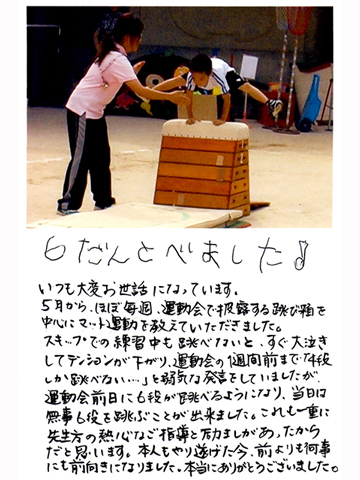 6だんとべました♪
いつも大変お世話になっています。
5月から、ほぼ毎週、運動会で披露する跳び箱を
中心にマット運動を教えていただきました。
スキップでの練習中も跳べないと、すぐ大泣き
してテンションが下がり、運動会の1週間前まで「4段
しか跳べない…」と弱気な発言をしていましたが
運動会前日に6段が跳べるようになり、当日は
無事6段を跳ぶことが出来ました。これも一重に
先生方の熱心なご指導と励ましがあったから
だと思います。本人もやり遂げた今、前よりも何事
にも前向きになりました。本当にありがとうございました。